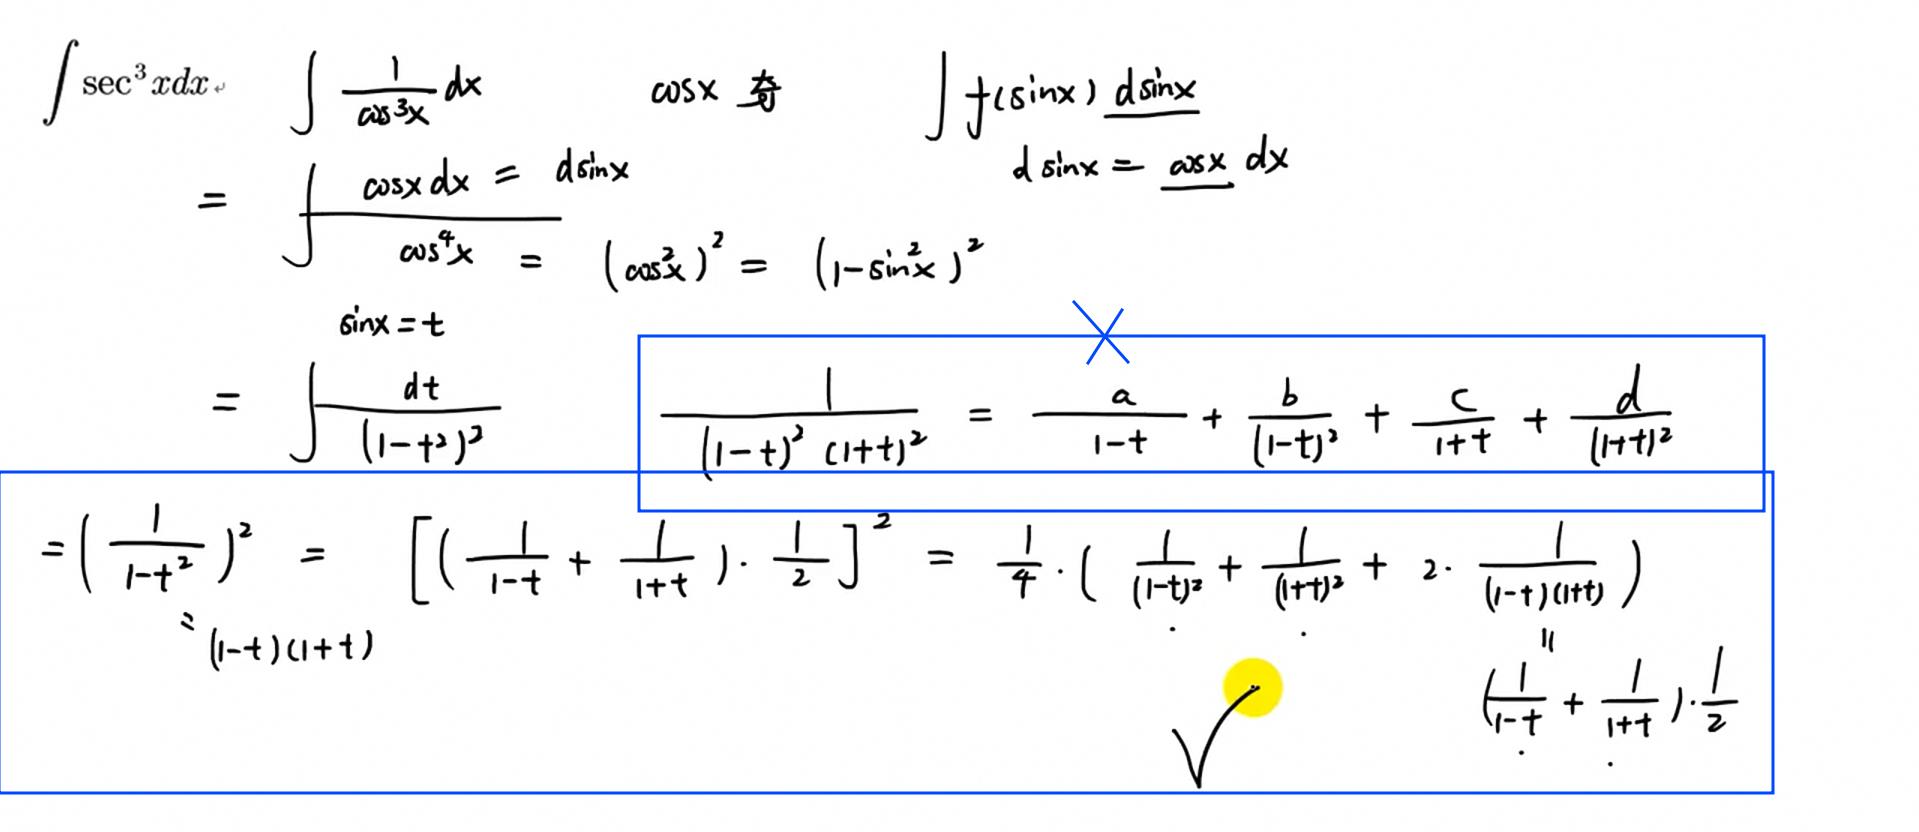 ∫ sec³ xdx ∫ 1/cos³x dx cosx 奇 ∫ f(sinx) dsinx
d sinx = cosx dx
= ∫ cosx dx = dsinx
cos⁴x = (cos²x)² = (1-sin²x)²
sinx = t
= ∫ dt/(1-t²)² 1/((1-t)² (1+t)²) = a/(1-t) + b/(1-t)² + c/(1+t) + d/(1+t)²
= (1/(1-t²))² = [(1/(1-t) + 1/(1+t)) · 1/2]² = 1/4 · (1/(1-t)² + 1/(1+t)² + 2 · 1/((1-t)(1+t)))
= (1-t)(1+t)
=
(1/(1-t) + 1/(1+t)) · 1/2